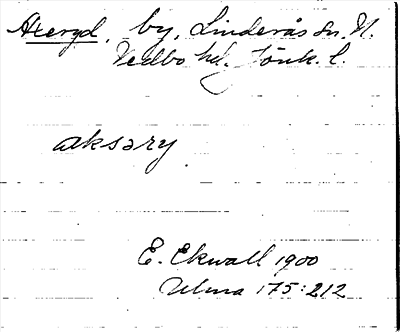 Axeryd, by, Linderås sn. N.
Vedbo hd. Jönk. l.
aksəry
E. Ekwall 1900
Ulma 175:212